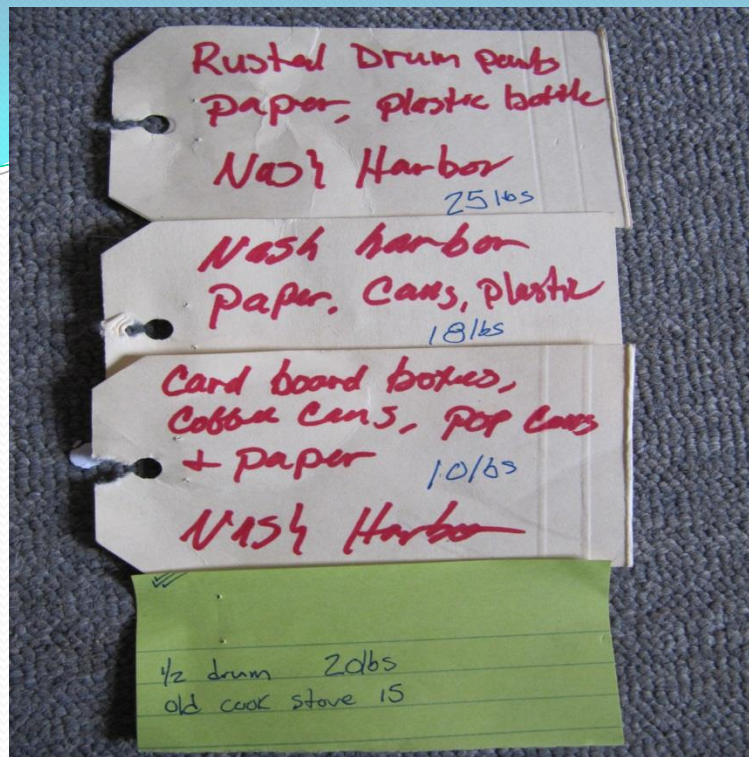 Rusted Drum parts
paper, plastic bottle
Nash Harbor
25 lbs
Nash harbor
paper, Cans, plastic
18 lbs
Card board boxes,
Coffee Cans, pop Cans
+ paper
10 lbs
Nash Harbor
1/2 drum 20lbs
old cook stove 15